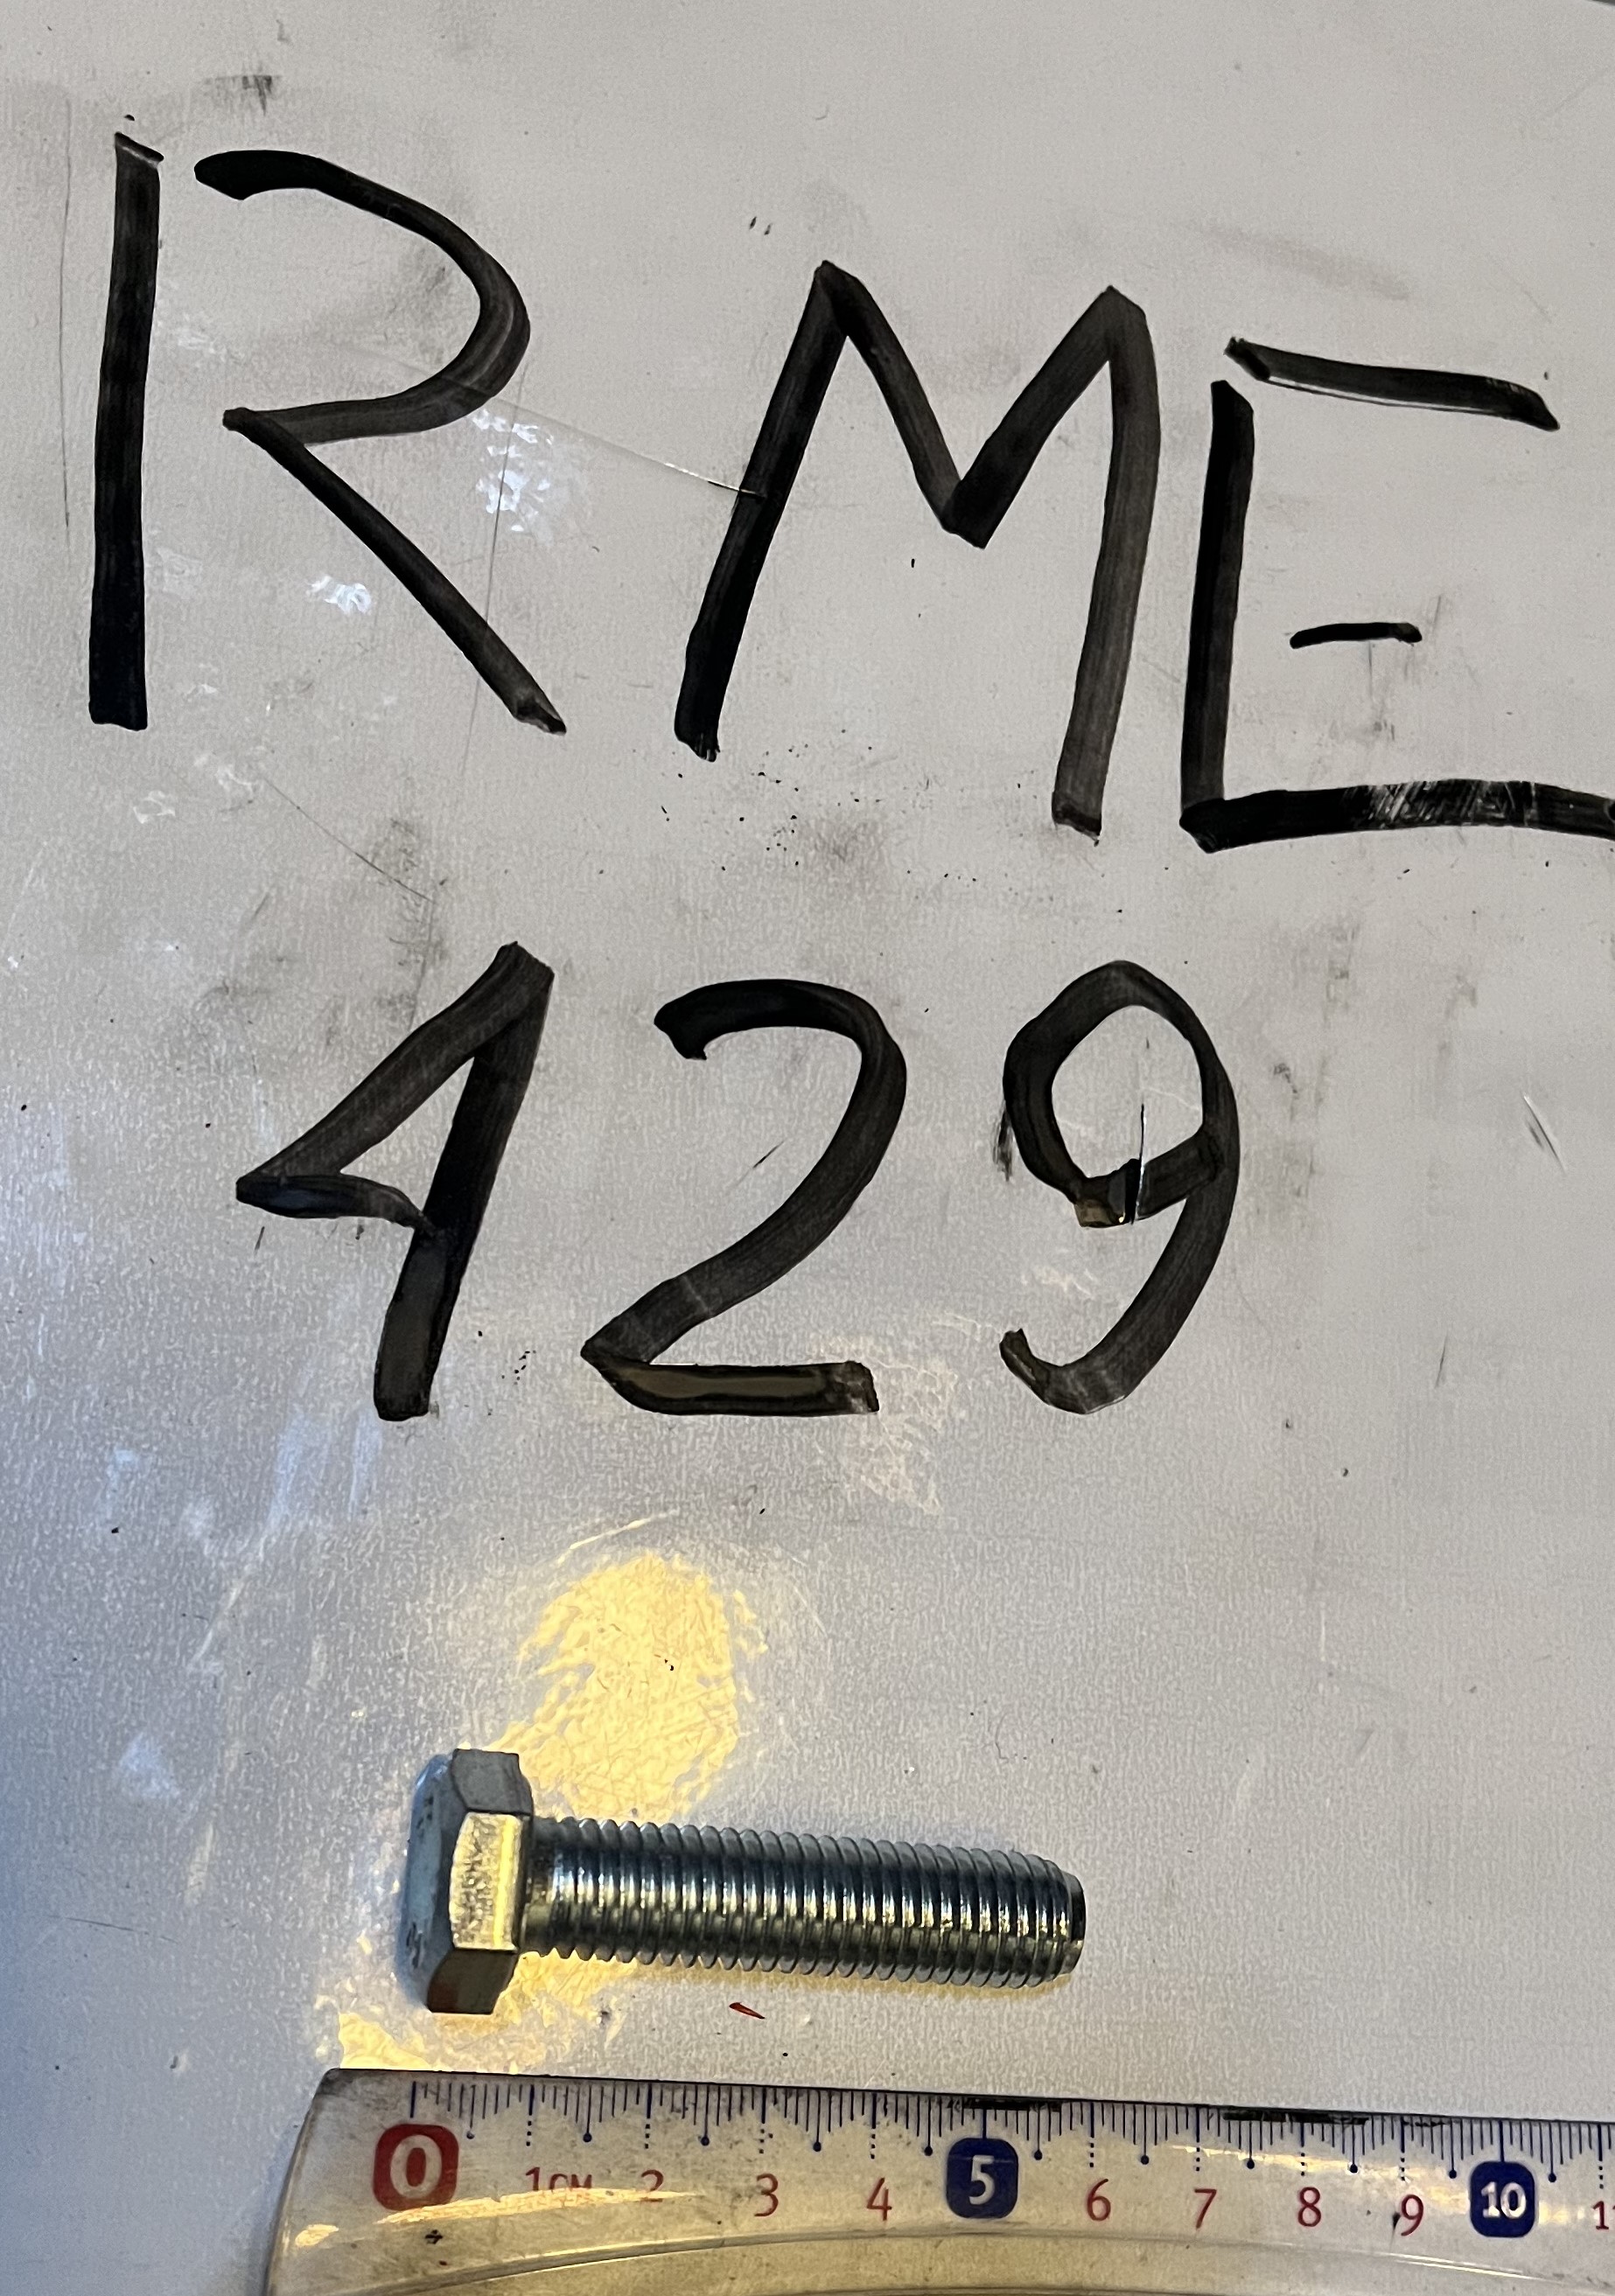 RME
429
0 1CM 2 3 4 5 6 7 8 9 10